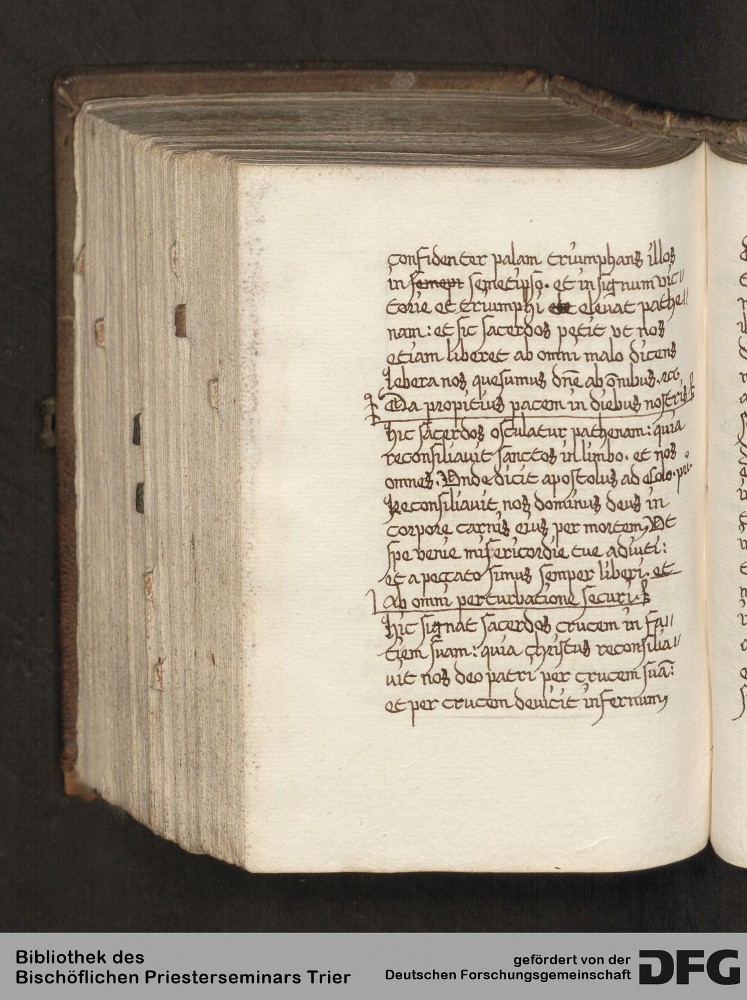 confidenter palam triumphans illos
in semepi semetipso. et in signum vic//
torie et triumphi elevat pathe//
nam: et sic sacerdos petit vt nos
etiam liberet ab omni malo dicens
lebera nos quesumus dn̄e ab ōnibus. rc̄
Da propitius pacem in diebus nostris
hic sacerdos osculatur pathenam: quia
reconsiliauit sanctos in limbo. et nos
omnes. Vnde dicit apostolus ad Colo. pᵒ.
Reconsiliauit nos dominus deus in
corpore carnis eius per mortem, Vt
spe venie misericordie tue adiuti:
et a peccato simus semper liberi. et
Ab omni perturbatione securi.
hic signat sacerdos crucem in fa//
ciem suam: quia christus reconsilia//
uit nos deo patri per crucem suā:
et per crucem deuicit infernum,
Bibliothek des
Bischöflichen Priesterseminars Trier
gefördert von der
Deutschen Forschungsgemeinschaft DFG